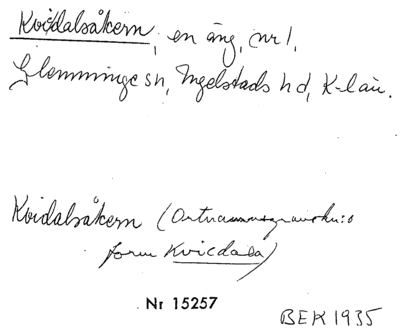 Kvidalsåkern, en äng, nr 1,
Glemminge sn, Ingelstads hd, K-län.
Kvidalsåkern (Ortnamnsgranskn:s
form Kvicdala)
Nr 15257
BEK 1935